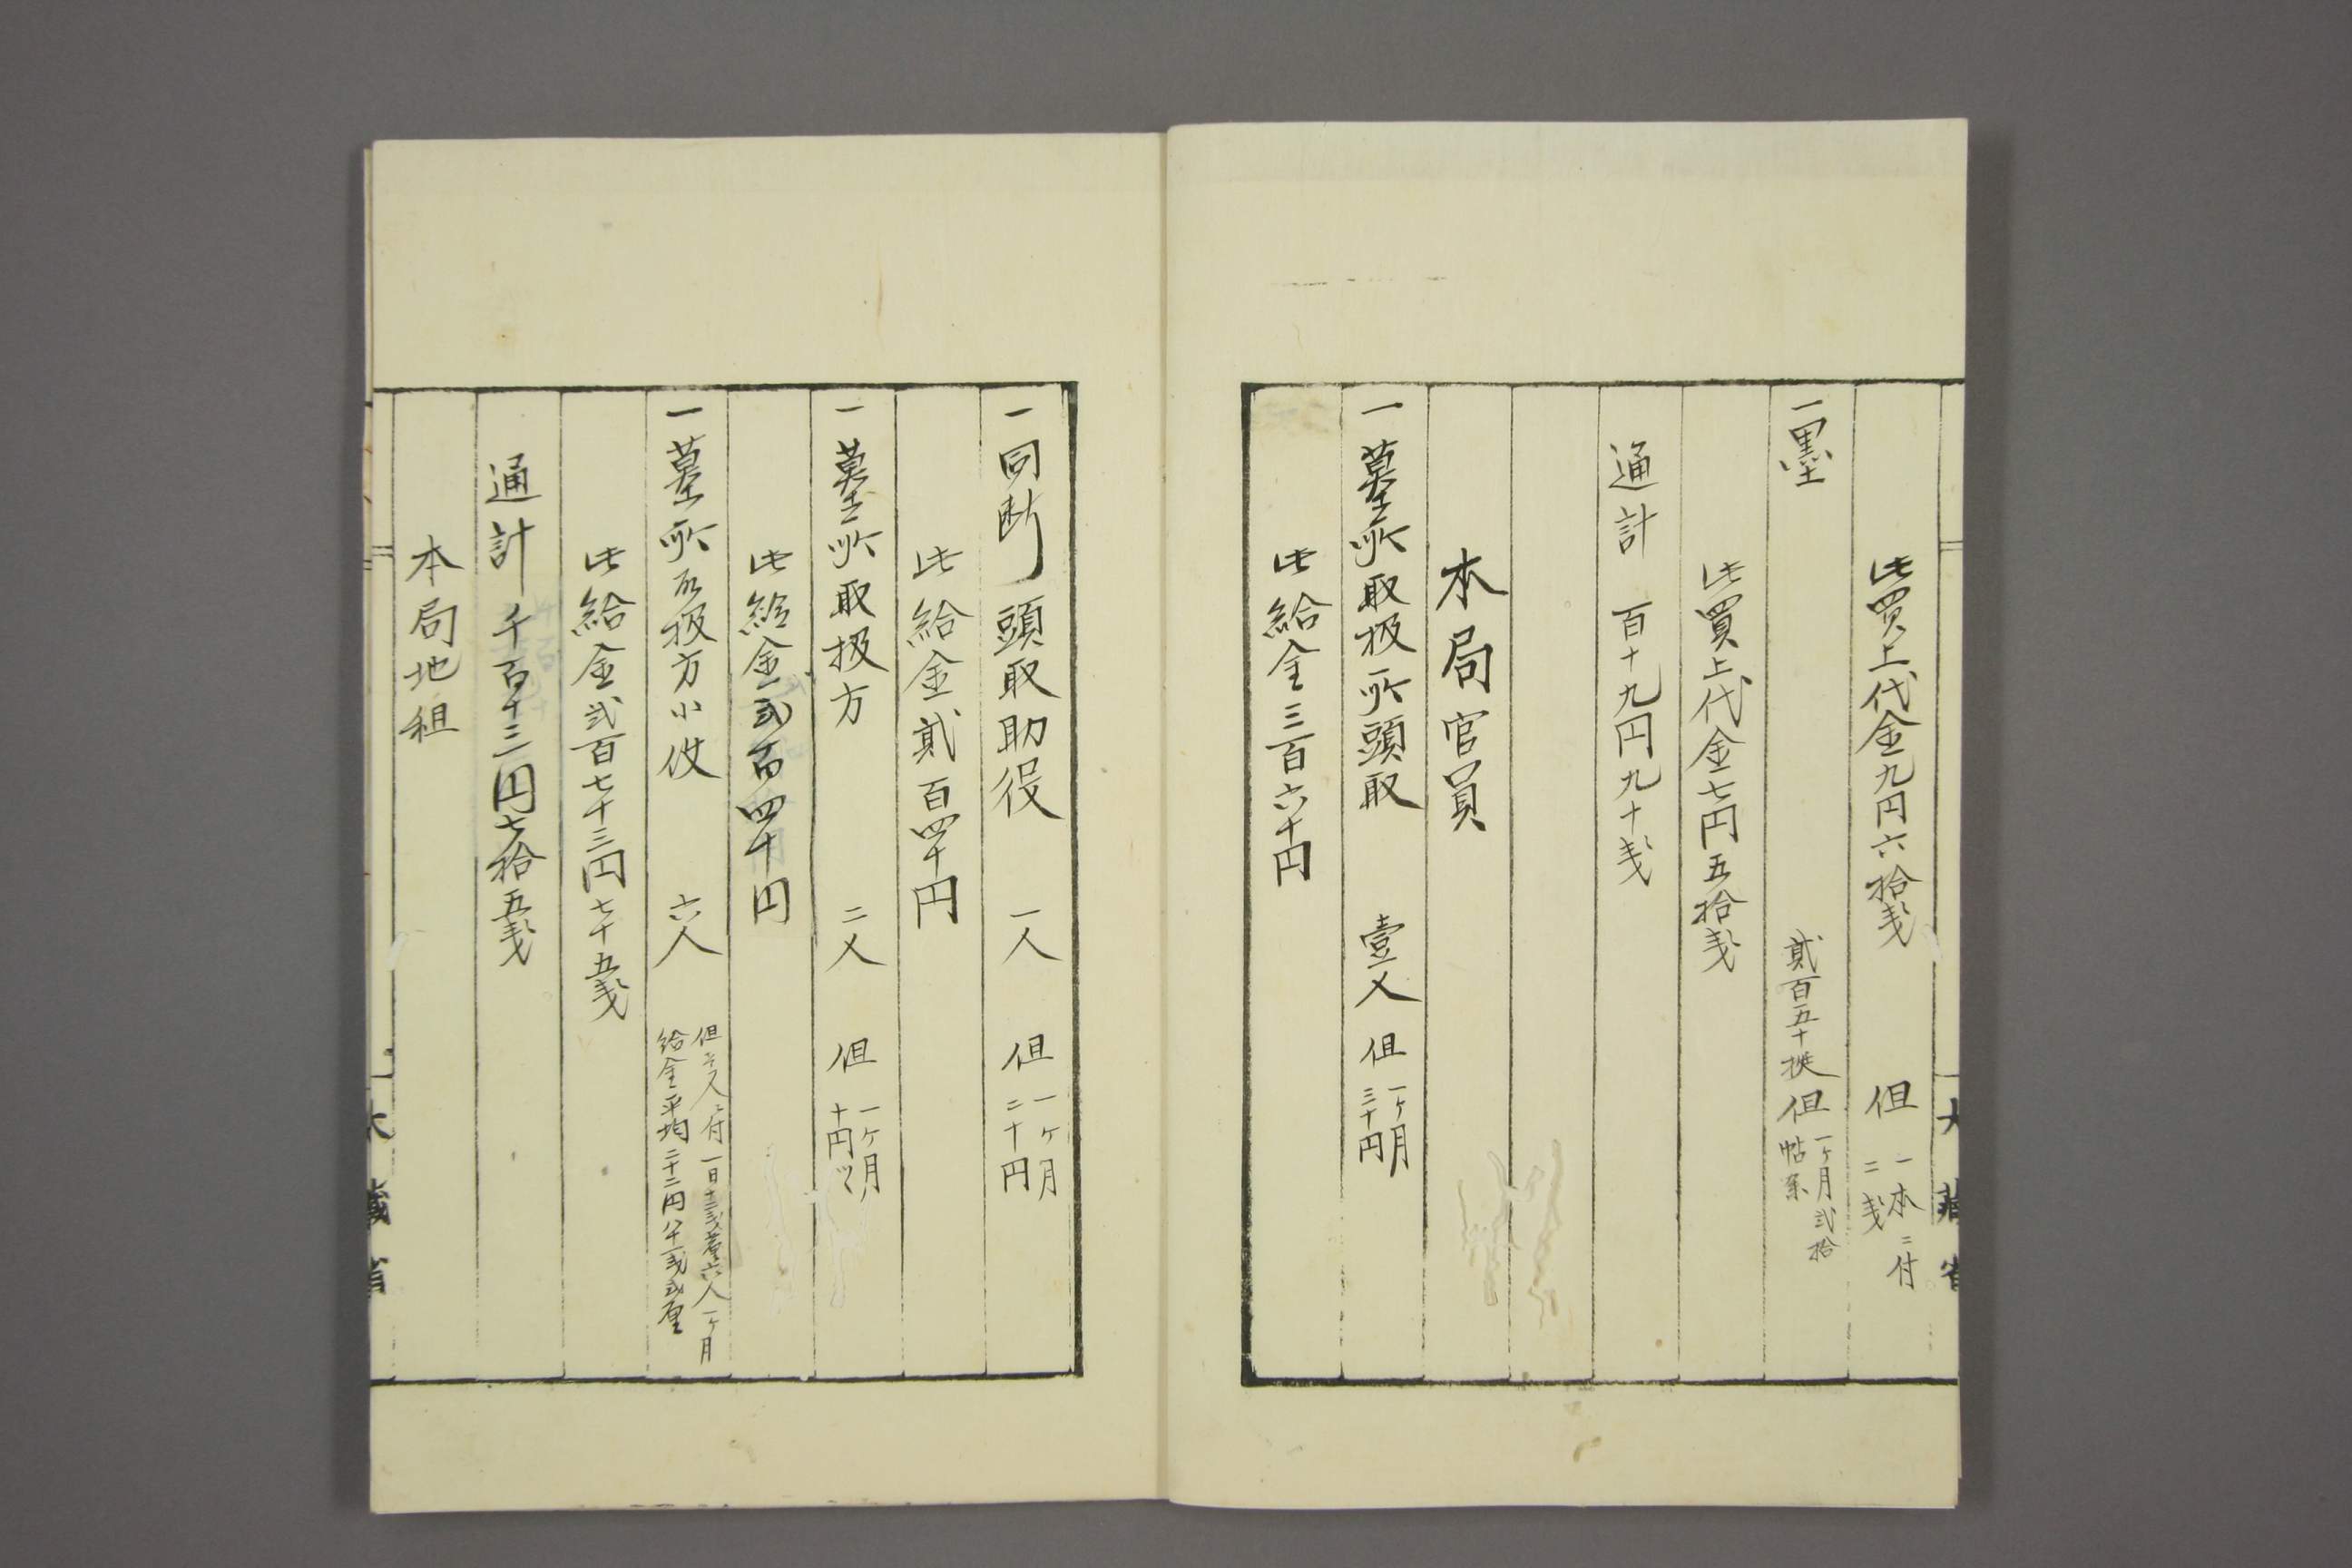 此買上代金九円六拾戔 但 一本ニ付二戔
一墨 貳百五十挺 但 一ケ月弐拾
此買上代金七円五拾戔
通計 百十九円九十戔
本局官員
一墓所取扱所頭取 壹人 但 一ケ月三十円
此給金三百六十円
大藏省
一同断頭取助役 一人 但 一ケ月二十円
此給金貳百四十円
一墓所取扱方 二人 但 一ケ月十円ツヽ
此給金弐百四十円
一墓所取扱方小使 六人 但壱人ニ付一日十二戔五厘六人一ケ月給金平均二十二円八十一戔弐厘
此給金弐百七十三円七十五戔
通計千百十三円七拾五戔
本局地租
大藏省